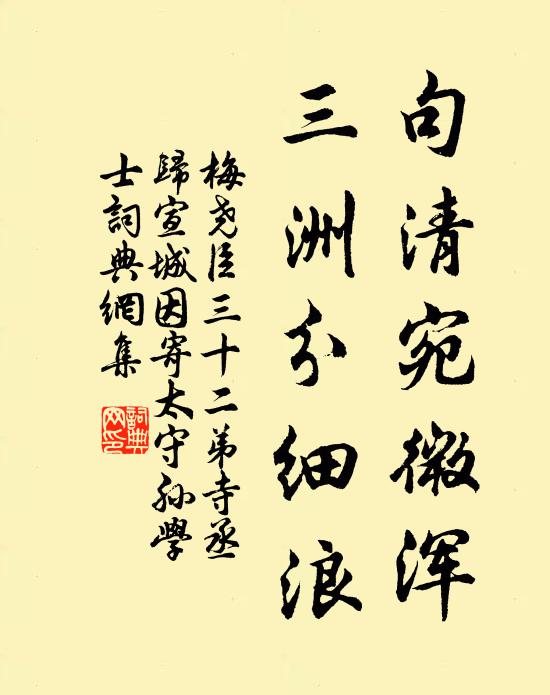 句清宛微浑
三洲分细浪
梅尧臣三十二弟寺丞
歸宣城因寄太守孙學
士詞典網集
詞典
网印